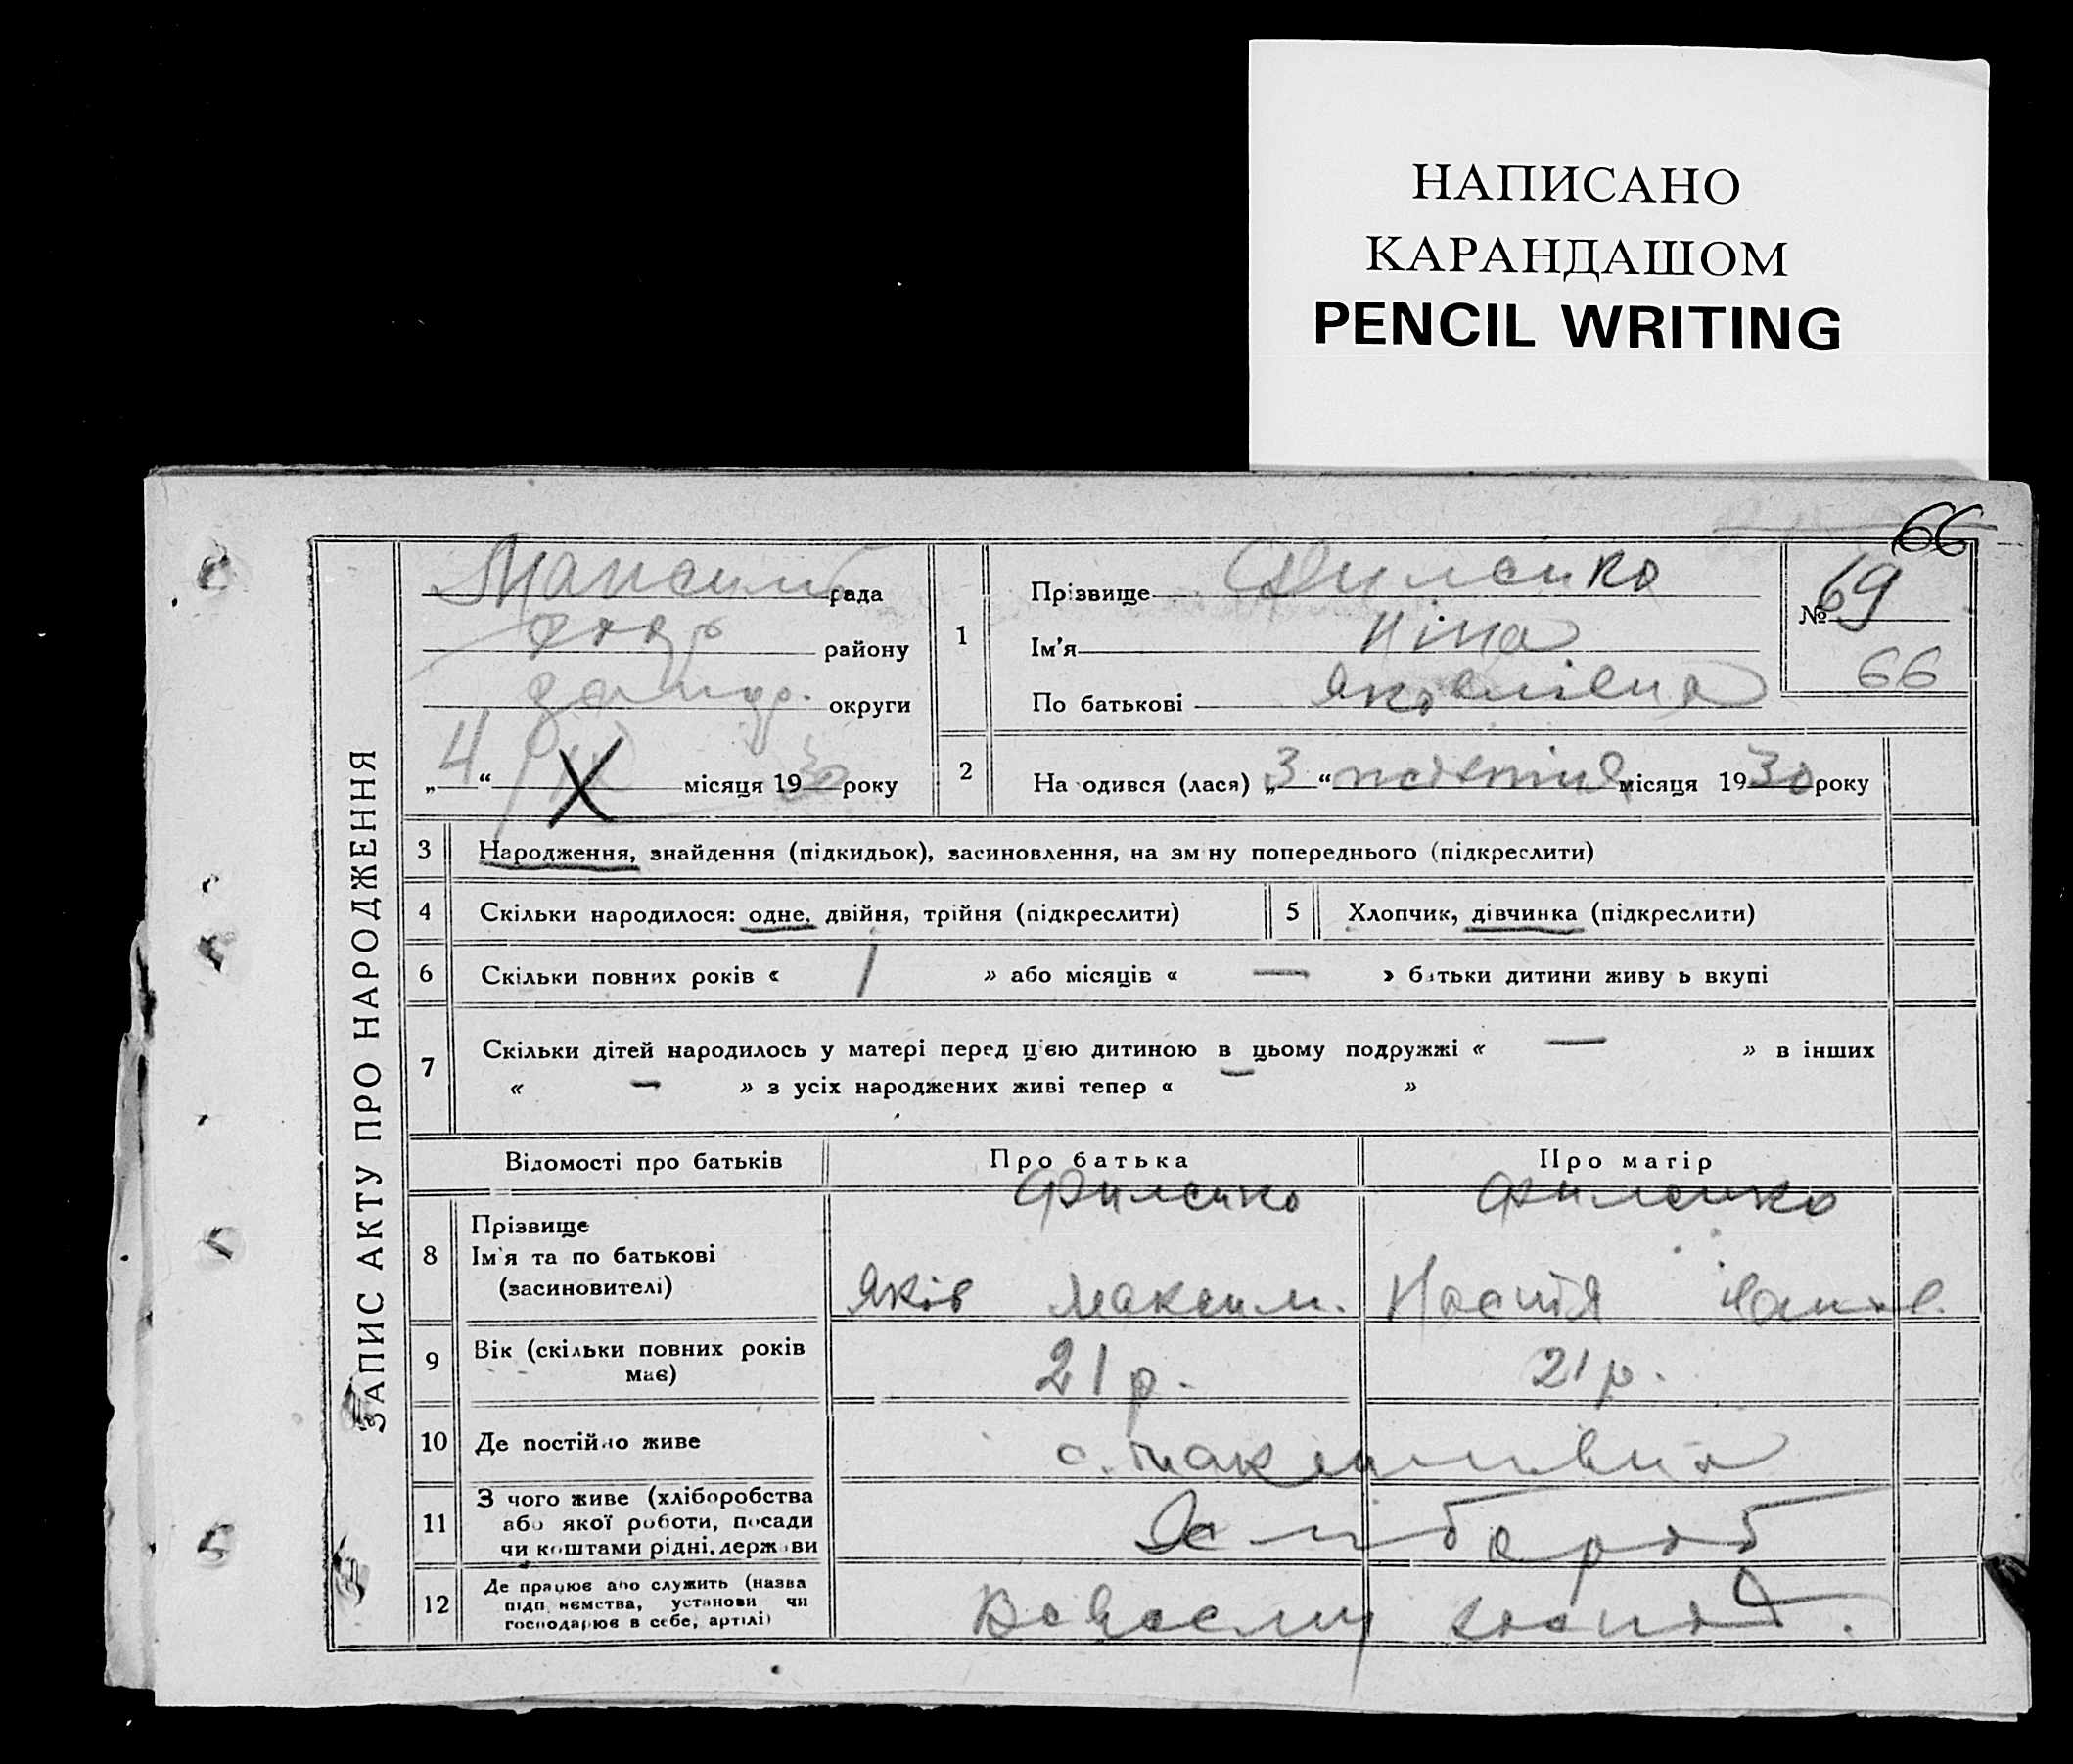 НАПИСАНО
КАРАНДАШОМ
PENCIL WRITING
66
ЗАПИС АКТУ ПРО НАРОДЖЕННЯ
Максим рада
району
округи
„4“ X місяця 1930 року
1
Прізвище Филенко
Ім'я Ніна
По батькові Яковлівна
№ 69
66
2 На одився (лася) „3“ жовтня місяця 1930 року
3 Народження, знайдення (підкидьок), засиновлення, на зм ну попереднього (підкреслити)
4 Скільки народилося: одне, двійня, трійня (підкреслити) 5 Хлопчик, дівчинка (підкреслити)
6 Скільки повних років « 1 » або місяців « — » батьки дитини живу ь вкупі
7 Скільки дітей народилось у матері перед цією дитиною в цьому подружжі « — » в інших
« — » з усіх народжених живі тепер « »
Відомості про батьків Про батька Про матір
8 Прізвище Филенко Филенко
Ім'я та по батькові
(засиновителі) Яків Максим. Настя Іванов.
9 Вік (скільки повних років має) 21 р. 21 р.
10 Де постійно живе с. Максимівка
11 З чого живе (хліборобства
або якої роботи, посади
чи коштами рідні, держави Хлібороб
12 Де працює або служить (назва
підп иємства, установи чи
господарює в себе, артілі) В своєму господ.